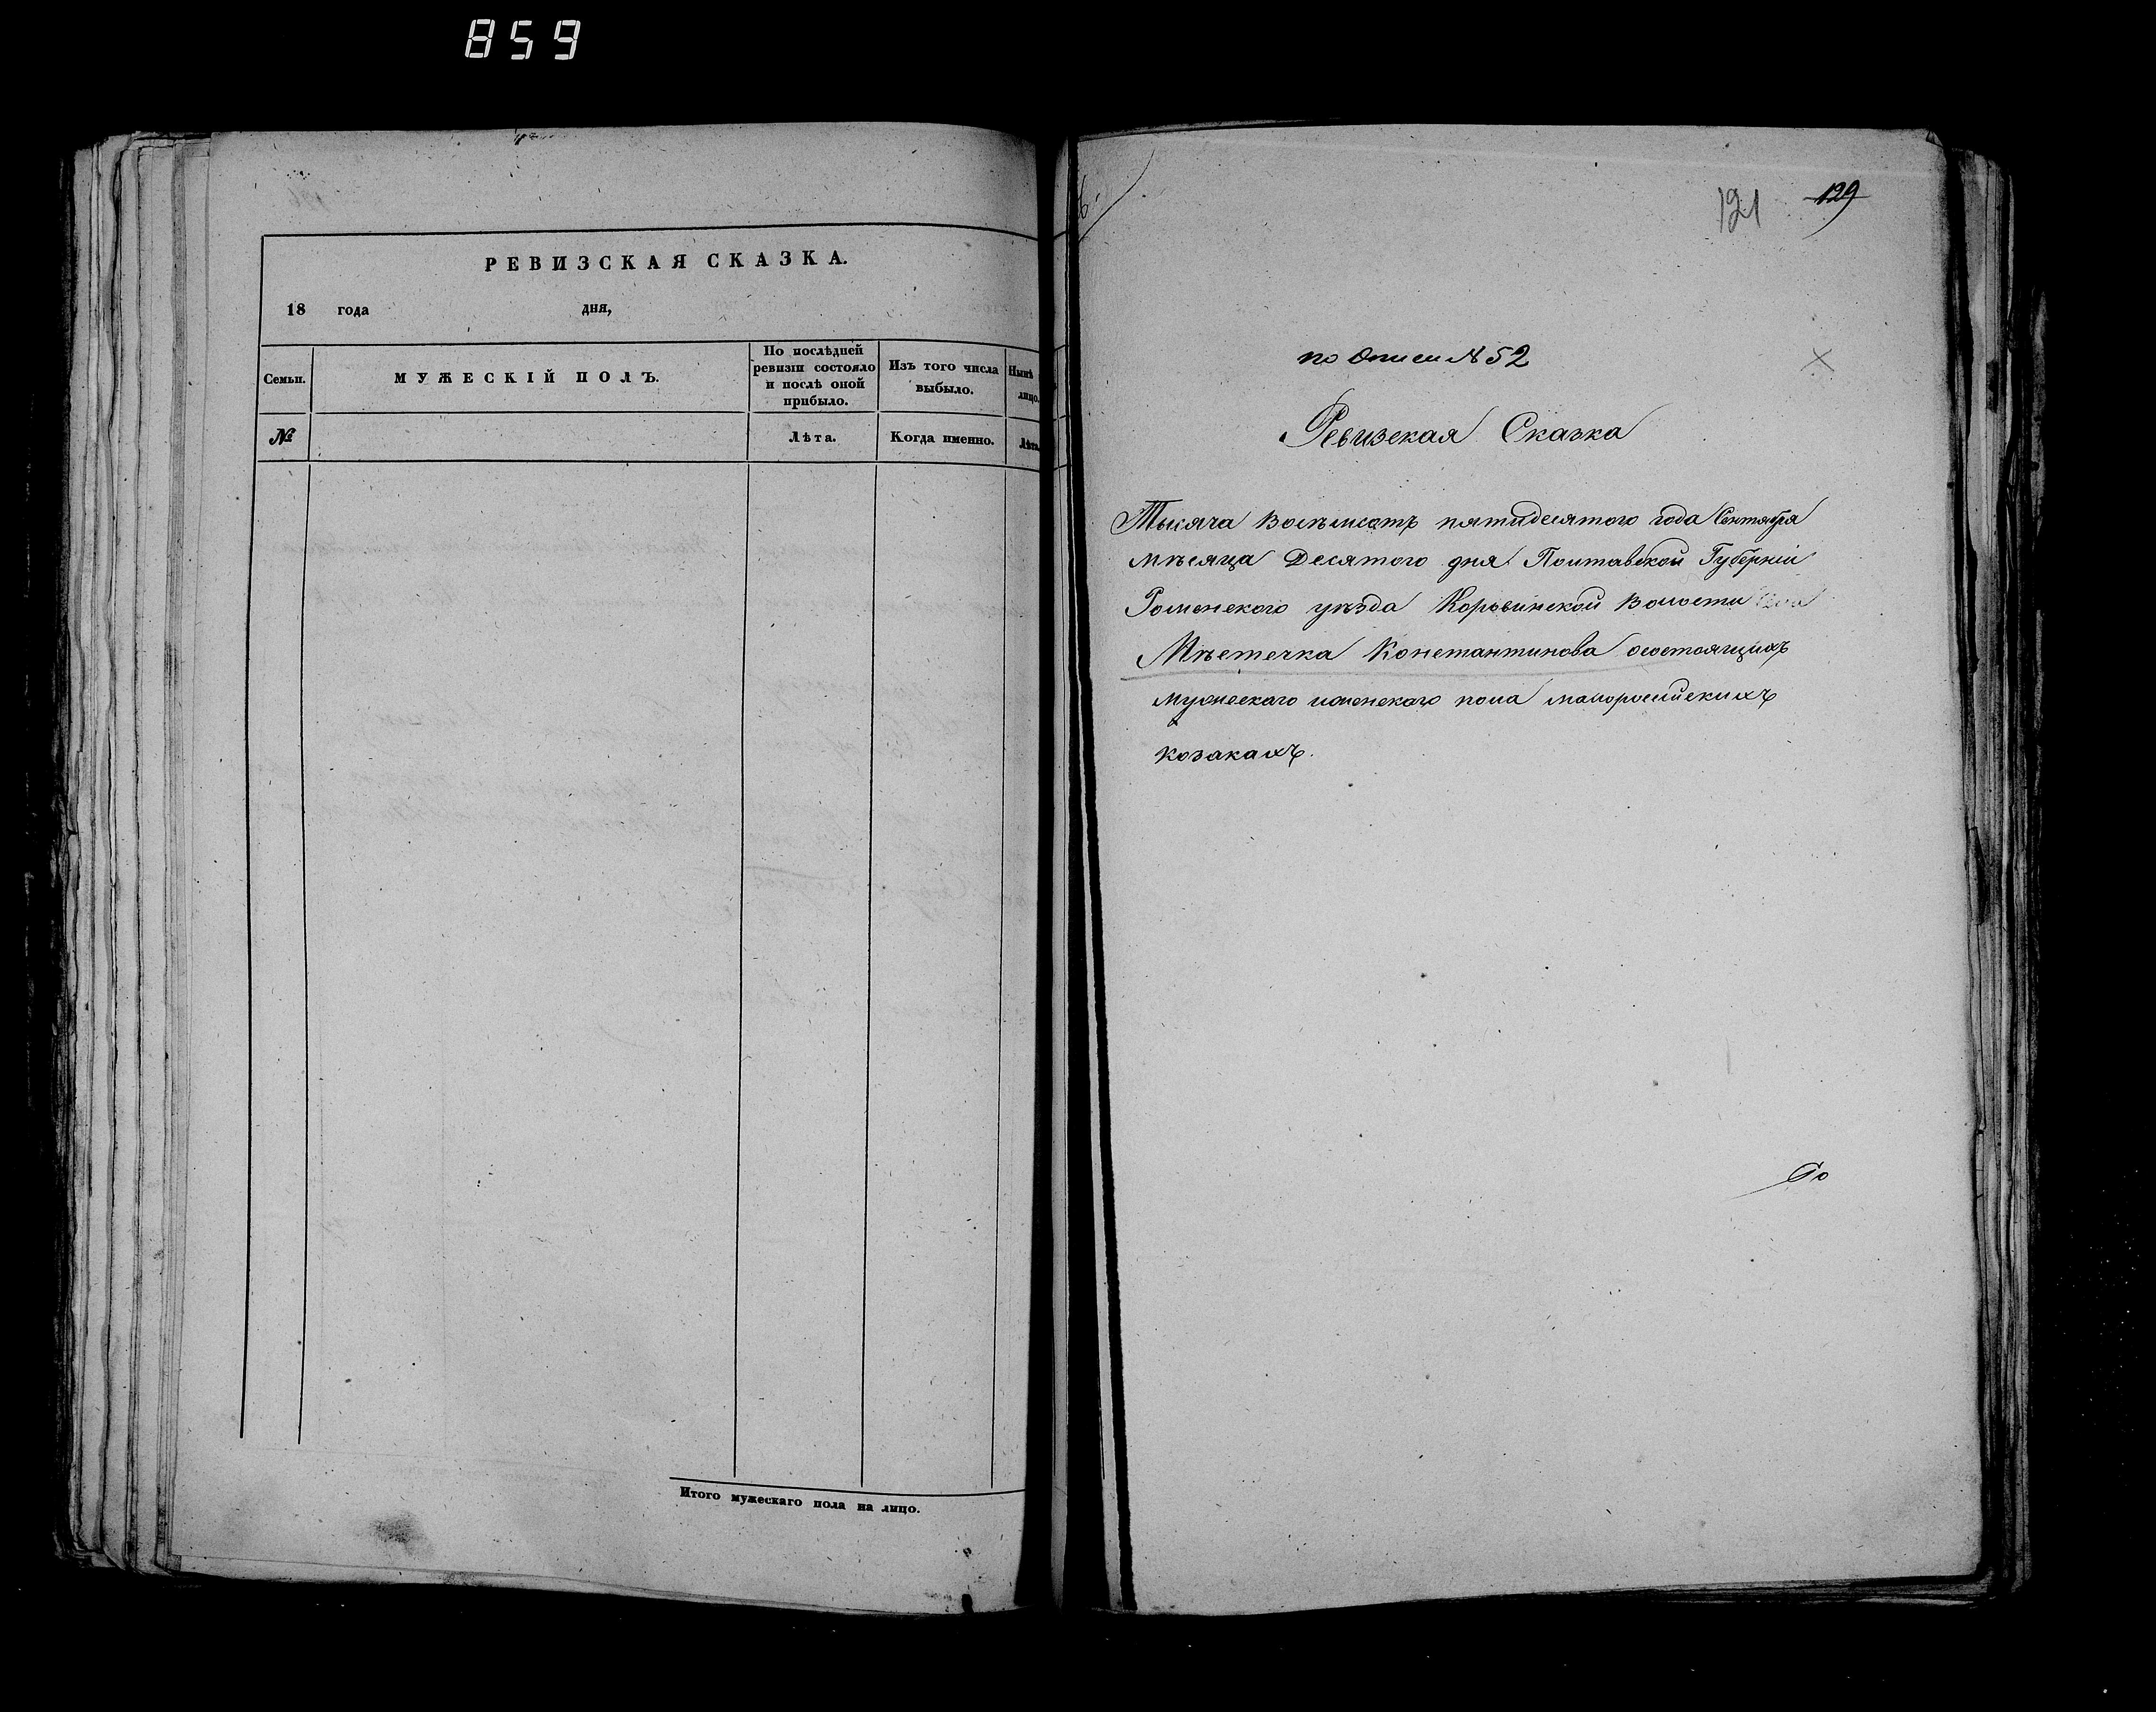 859
РЕВИЗСКАЯ СКАЗКА.
18 года дня,
Семьи.
МУЖЕСКІЙ ПОЛЪ.
По послѣдней
ревизіи состояло
и послѣ оной
прибыло.
Изъ того числа
выбыло.
Нынѣ
лицо.
№
Лѣта.
Когда именно.
Лѣта
Итого мужескаго пола на лицо.
121 129
по Описи № 52
Ревизская Сказка
Тысяча Восѣмсотъ пятидесятого года Сентября
мѣсяца Десятого дня Полтавской Губерніи
Роменского уѣзда Коровинской Волости
Мѣстечка Константинова осостоящихъ
мужескаго иженскаго пола малоросійскихъ
козакахъ.